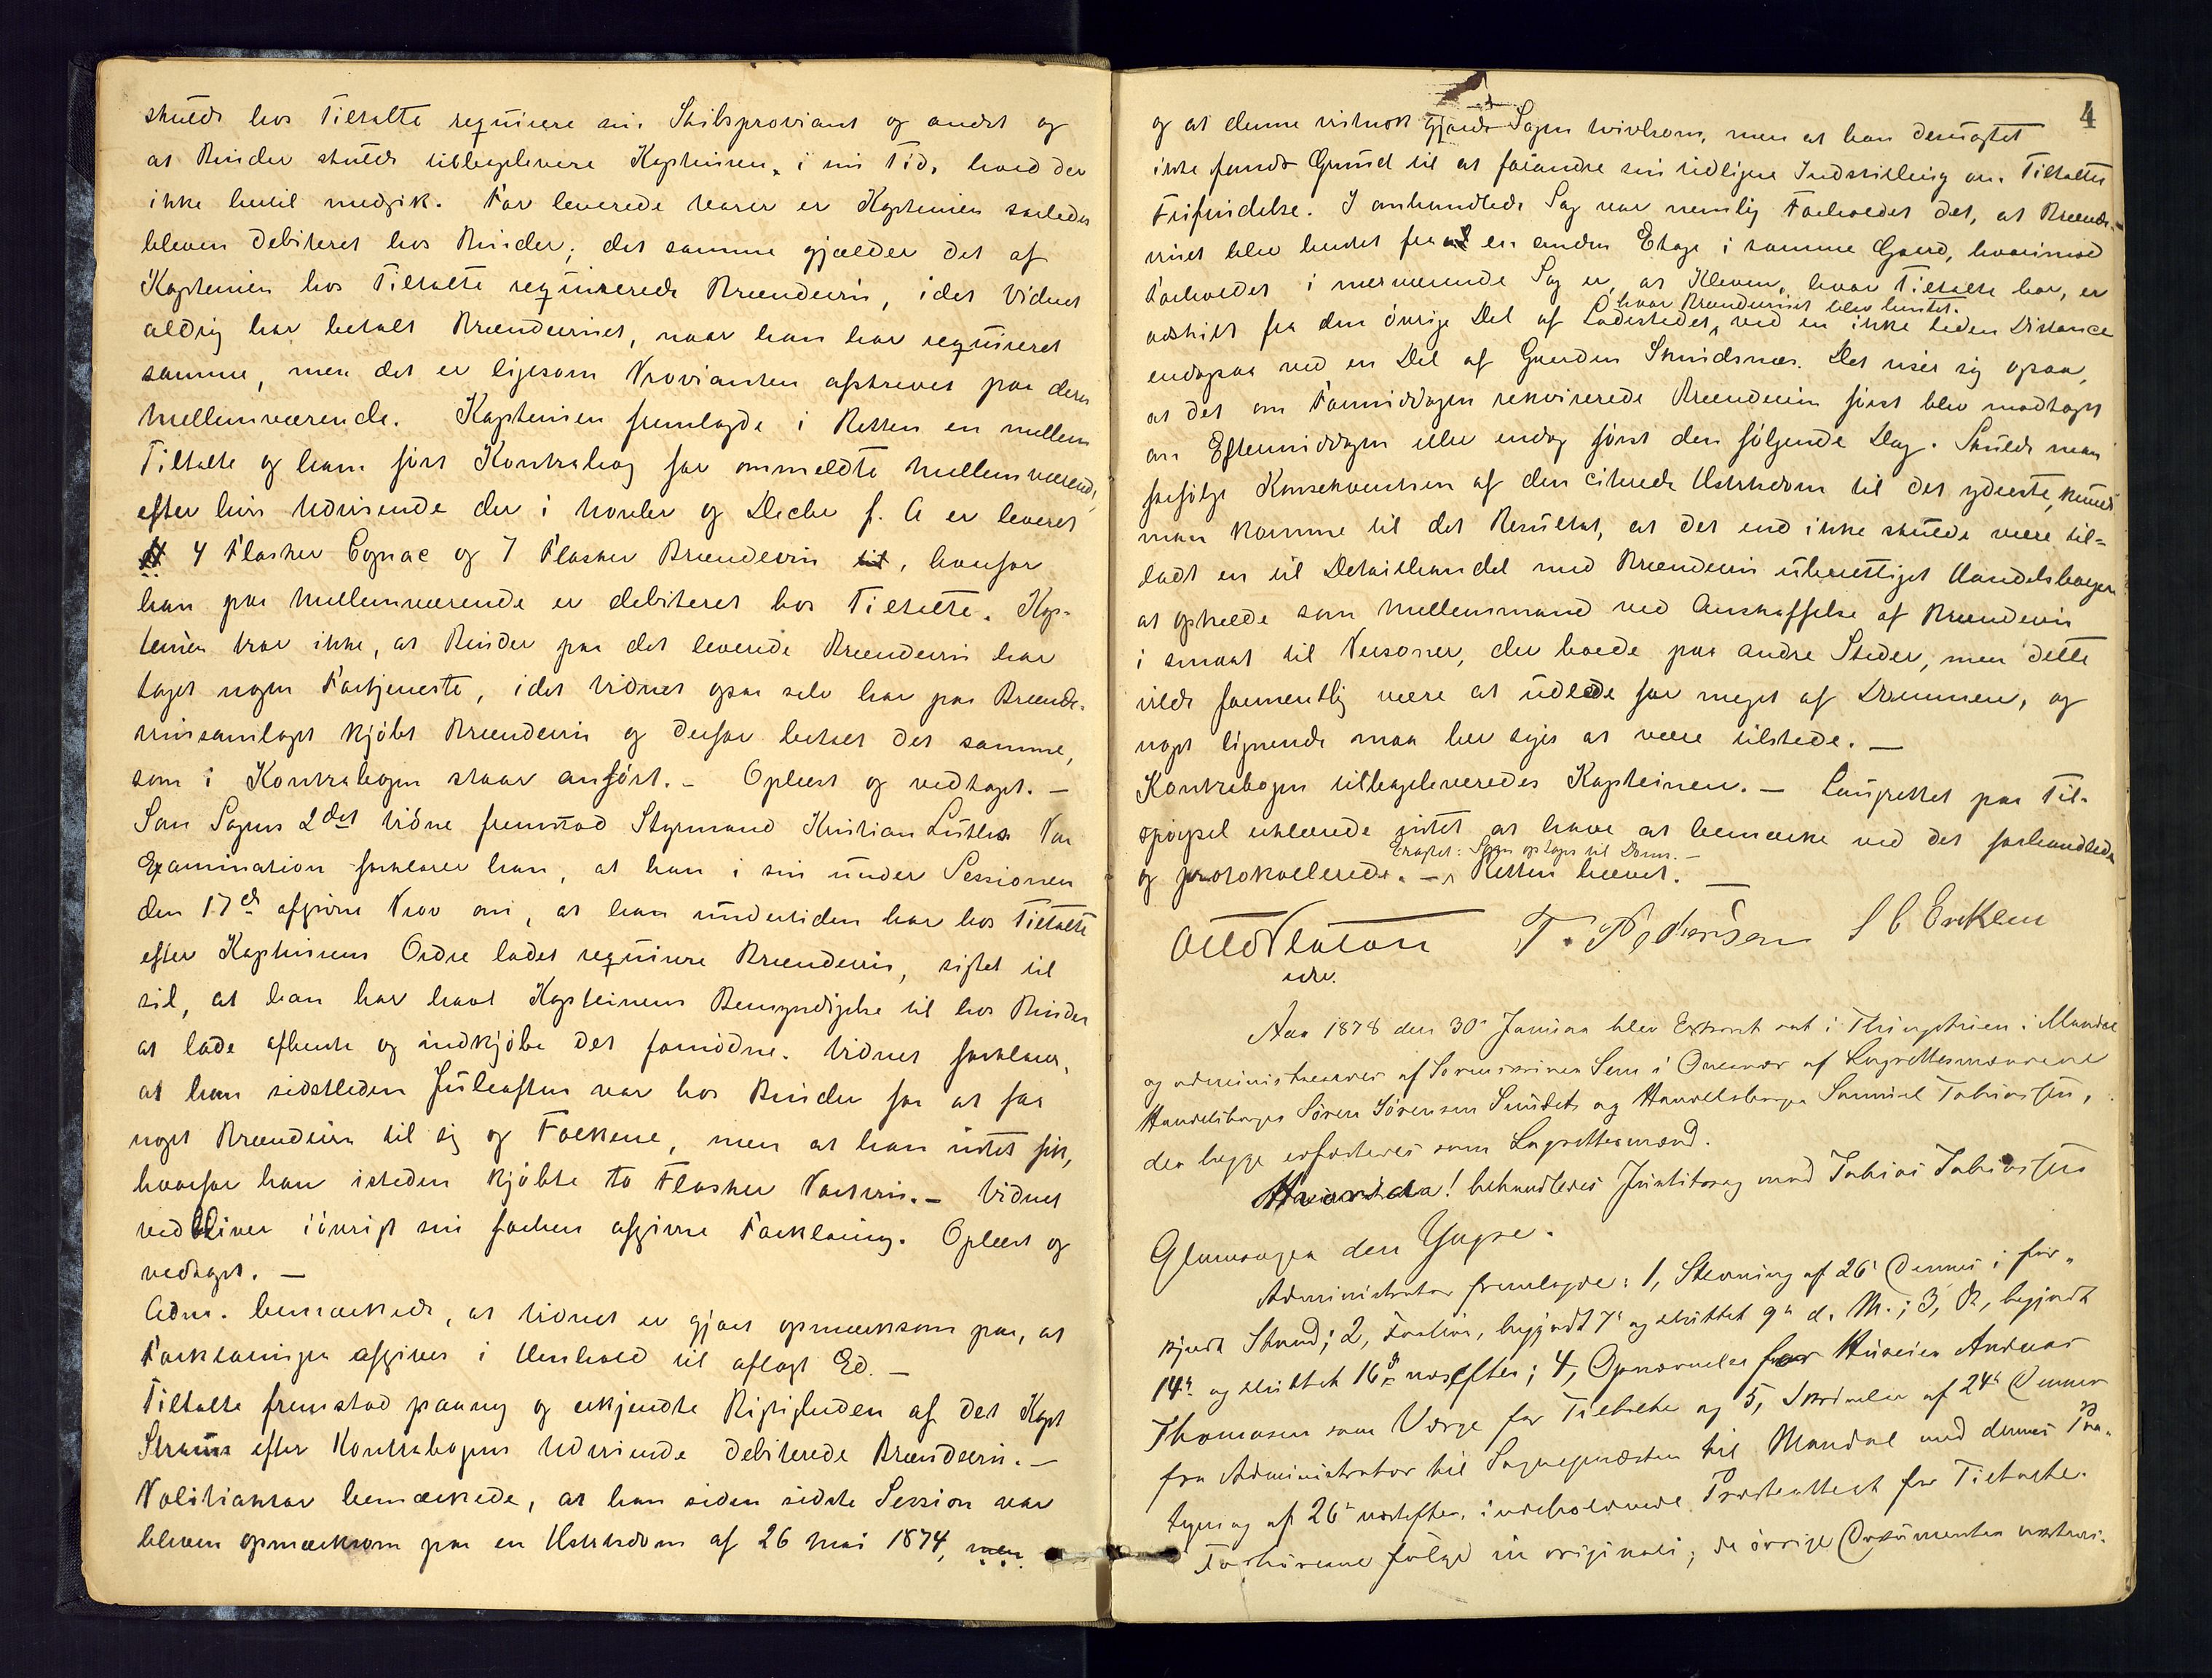 skulde hos Tiltalte requirere sin Skibsproviant og andet og
at Reinder skulde tilbagelevere Kapteinen, i sin Tid, hvad der
ikke hertil medgik. For leverede Varer er Kapteinen saaledes
bleven debiteret hos Reinder; det samme gjælder det af
Kapteinen hos Tiltalte requirerede Brændeviin, idet Vidnet
aldrig har betalt Brændevinet, naar han har requireret
samme, men det er ligesom Provianten afskrevet paa deres
Mellemværende. Kapteinen fremlagde i Retten en mellem
Tiltalte og ham ført Kontrabog for ommeldte Mellemværende,
efter hvis Udvisende der i Novbr og Decbr f. A. er leveret
4 Flasker Cognac og 7 Flasker Brændeviin til, hvorfor
han paa Mellemværende er debiteret hos Tiltalte. Kap-
teinen tror ikke, at Reinder paa det leverede Brændeviin har
taget nogen Fortjeneste, idet Vidnet ogsaa selv har paa Brænde-
viinsamlaget kjøbt Brændeviin og derfor betalt det samme,
som i Kontrabogen staar anført. – Oplæst og vedtaget. –
Som Sagens 2det Vidne fremstod Styrmand Kristian Lütken Paa
Examination forklarer han, at han i sin under Sessionen
den 17de afgivne Prov om, at han undertiden har hos Tiltalte
efter Kapteinens Ordre ladet requirere Brændeviin, sigtet til
sit, at han har havt Kapteinens Bemyndigelse til hos Reinder
at lade afhente og indkjøbe det fornødne. Vidnet forklarer,
at han sidstleden Juleaften var hos Reinder for at faa
noget Brændeviin til sig og Folkene, men at han intet fik,
hvorfor han isteden kjøbte to Flasker Portviin. – Vidnet
vedbliver iøvrigt sin forhen afgivne Forklaring. Oplæst og
vedtaget. –
Adm. bemærkede, at Vidnet er gjort opmærksom paa, at
Forklaringen afgives i Henhold til aflagt Ed. –
Tiltalte fremstod paany og erkjendte Rigtigheden af det Kapt
efter Kontrabogens Udvisende debiterede Brændeviin. –
Politiaktor bemærkede, at han siden sidste Session var
bleven opmærksom paa en Høiesteretsdom af 26 Mai 1874, men
4
og at denne vistnok gjorde Sagen tvivlsom, men at han desuagtet
ikke fandt Grund til at forandre sin tidligere Indstilling om Tiltaltes
Frifindelse. I omhandlede Sag var nemlig Forholdet det, at Brænde-
vinet blev hentet fra en anden Etage i samme Gaard, hvorimod
Forholdet i nærværende Sag er, at Kleven, hvor Tiltalte bor, er
hvor Brændevinet blev hentet.
adskilt fra den øvrige Del af Ladestedet, ved en ikke liden Distance
endogsaa ved en Del af Gaarden Skindsnæs. Det viser sig ogsaa,
at det om Formiddagen rekvirerede Brændeviin først blev modtaget
om Eftermiddagen eller endog først den følgende Dag. Skulde man
forfølge Konsekventsen af den citerede Høiesteretsdom til det yderste, kunde
man komme til det Resultat, at det end ikke skulde være til-
ladt en til Detailhandel med Brændeviin uberettiget Handelsborger
at optræde som Mellemmand ved Anskaffelse af Brændeviin
i smaat til Personer, der boede paa andre Steder, men dette
vilde formentlig være at udlede for meget af Dommen, og
noget lignende maa her siges at være tilstede. –
Kontrabogen tilbageleveredes Kapteinen. – Laugrettet paa Til-
spørgsel erklærede intet at have at bemærke ved det forhandlede
Eragtet: Sagen optages til Doms. –
og protokollerede. – Retten hævet. –
Otto Platou T. Pedersen S C Eriksen
edsv.
Aar 1878 den 30te Januar blev Extraret sat i Thingstuen i Mandal
og administreret af Sorenskriver Lem i Overvær af Lagrettesmændene
Handelsborger Søren Sørensen Sundet og Handelsborger Samuel Tobiassen,
der begge edfæstedes som Lagrettesmænd.
Hvorda! behandledes Justitssag mod Tobias Tobiassen
den Yngre.
Administrator fremlagde: 1, Stevning af 26de dennes i for-
kyndt Stand; 2, Forhør, begyndt 7de og sluttet 9de d. M.; 3, Do, begyndt
14de og sluttet 16de næstefter; 4, Opnævnelse for Andreas
Thomasen som Værge for Tiltalte og 5, Skrivelse af 24de dennes
fra Administrator til Sognepresten til Mandal med dennes Paa-
tegning af 26de næstefter, indeholdende Præsteattest for Tiltalte.
Forhørene følge in originali, de øvrige Documenter